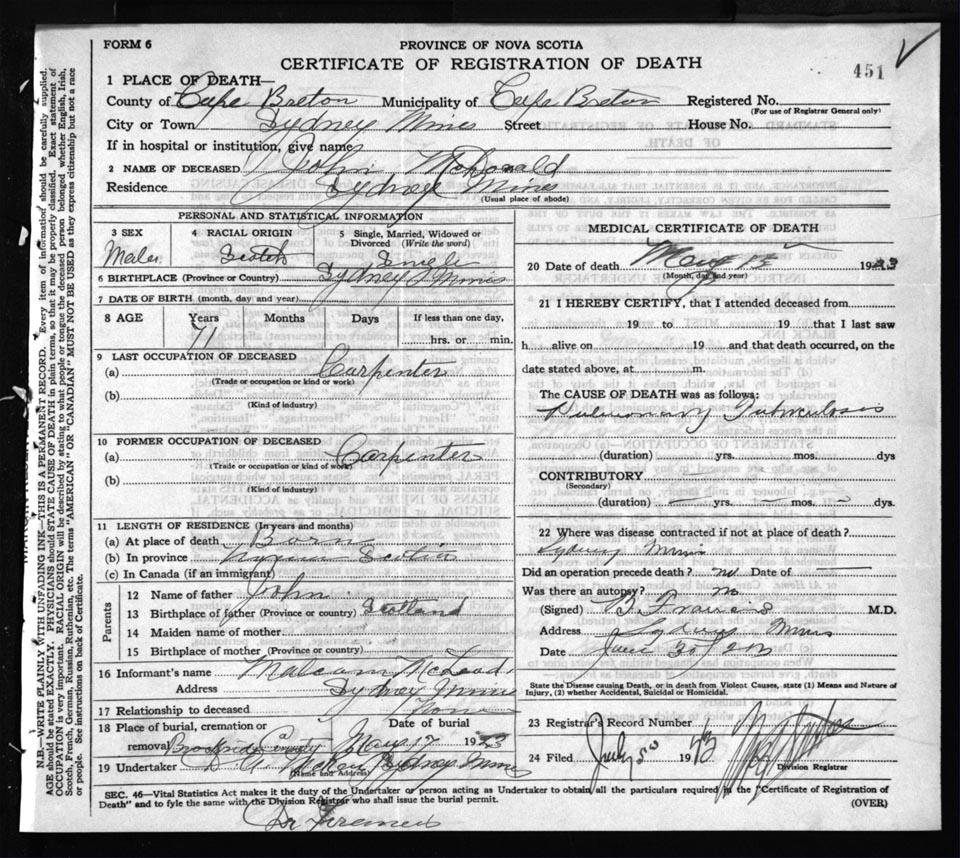 FORM 6
PROVINCE OF NOVA SCOTIA
CERTIFICATE OF REGISTRATION OF DEATH
451
1 PLACE OF DEATH—
County of Cape Breton Municipality of Cape Breton Registered No.
(For use of Registrar General only)
City or Town Sydney Mines Street House No.
If in hospital or institution, give name
2 NAME OF DECEASED John McDonald
Residence Sydney Mines
(Usual place of abode)
PERSONAL AND STATISTICAL INFORMATION
3 SEX 4 RACIAL ORIGIN 5 Single, Married, Widowed or Divorced (Write the word)
Male Scotch Single
6 BIRTHPLACE (Province or Country) Sydney Mines
7 DATE OF BIRTH (month, day and year)
8 AGE Years Months Days If less than one day,
71 hrs. or min.
9 LAST OCCUPATION OF DECEASED
(a) Carpenter
(Trade or occupation or kind or work)
(b)
(Kind of industry)
10 FORMER OCCUPATION OF DECEASED
(a) Carpenter
(Trade or occupation or kind or work)
(b)
(Kind of industry)
11 LENGTH OF RESIDENCE (In years and months)
(a) At place of death Born
(b) In province Scotia
(c) In Canada (if an immigrant)
Parents
12 Name of father John
13 Birthplace of father (Province or country) Scotland
14 Maiden name of mother
15 Birthplace of mother (Province or country)
16 Informant's name Malcom McLeod
Address Sydney Mines
17 Relationship to deceased None
18 Place of burial, cremation or removal Date of burial
May 17
19 Undertaker Sydney Mines
(Name and Address)
MEDICAL CERTIFICATE OF DEATH
20 Date of death May 15
(Month, day and year)
21 I HEREBY CERTIFY, that I attended deceased from
19 to 19 that I last saw
h alive on 19 and that death occurred, on
date stated above, at m.
The CAUSE OF DEATH was as follows:
Pulmonary Tuberculosis
(duration) yrs. mos. dys
CONTRIBUTORY
(Secondary)
(duration) yrs. mos. dys.
22 Where was disease contracted if not at place of death?
Sydney Mines
Did an operation precede death? no Date of
Was there an autopsy? no
(Signed) Francis M.D.
Address Sydney Mines
Date June 30
State the Disease causing Death, or in Death from Violent Causes, state (1) Means and Nature of
Injury, (2) whether Accidental, Suicidal or Homicidal.
23 Registrar's Record Number
24 Filed July 19
Division Registrar
SEC. 46—Vital Statistics Act makes it the duty of the Undertaker or person acting as Undertaker to obtain all the particulars required in the "Certificate of Registration of
Death" and to fyle the same with the Division Registrar who shall issue the burial permit.
(OVER)
Dr Francis
N.B.—WRITE PLAINLY WITH UNFADING INK—THIS IS A PERMANENT RECORD. Every item of information should be carefully supplied.
AGE should be stated EXACTLY. PHYSICIANS should STATE CAUSE OF DEATH in plain terms, so that it may be properly classified. Exact statement of
OCCUPATION is very important. RACIAL ORIGIN will be described by stating to what people or tongue the deceased person belonged, whether English, Irish,
Scotch, French, German, Russian, Ruthenian, etc. The terms "AMERICAN" OR "CANADIAN" MUST NOT BE USED as they express citizenship but not a race
or people. See instructions on back of Certificate.